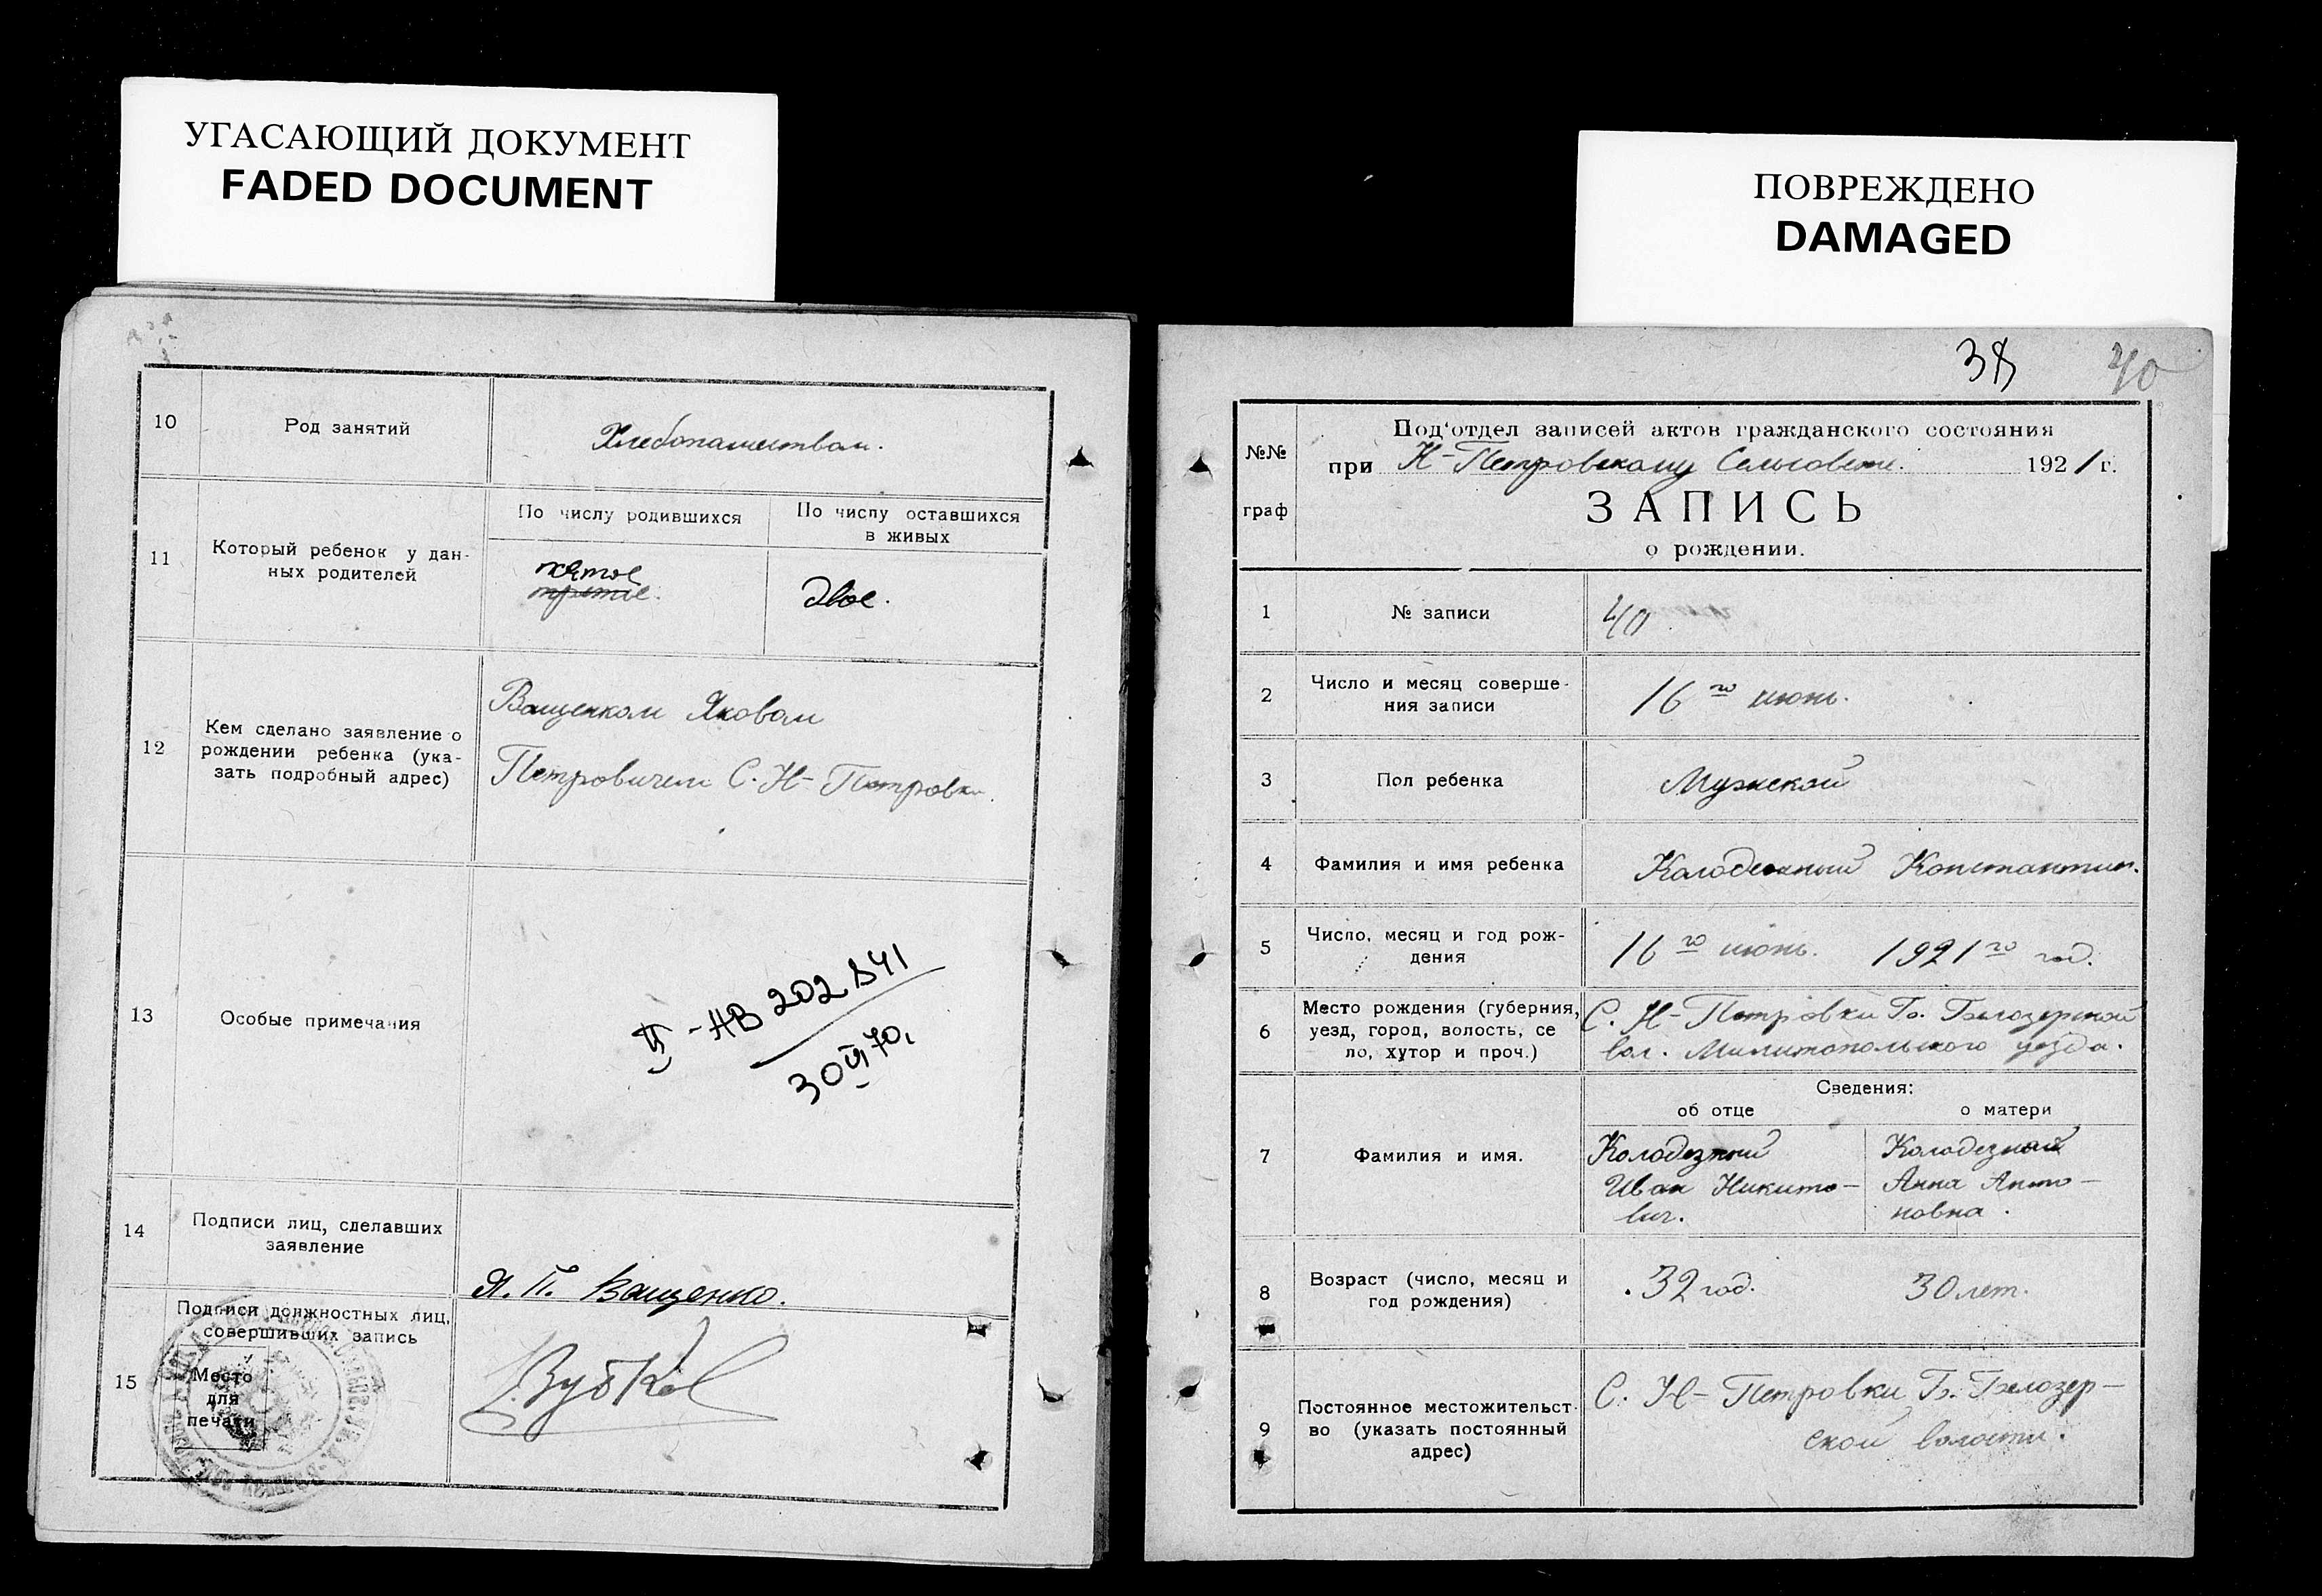 УГАСАЮЩИЙ ДОКУМЕНТ
FADED DOCUMENT
10
Род занятий
Хлебопашеством.
11
Который ребенок у дан-
ных родителей
По числу родившихся
По числу оставшихся
в живых
пятое
третие.
двое.
12
Кем сделано заявление о
рождении ребенка (ука-
зать подробный адрес)
Ващенком Яковом
Петровичем С. Н-Петровки.
13
Особые примечания
-НВ 202841
30 VI 70.
14
Подписи лиц, сделавших
заявление
Я. П. Ващенко.
15
Подписи должностных лиц,
совершивших запись
Место
для
печати
Зубков
ПОВРЕЖДЕНО
DAMAGED
38 40
№№
граф
Под'отдел записей актов гражданского состояния
при Н-Петровскому Сельсовете. 1921 г.
ЗАПИСЬ
о рождении.
1
№ записи
40
2
Число и месяц соверше-
ния записи
16го июнь.
3
Пол ребенка
Мужской
4
Фамилия и имя ребенка
Колодезный Константин.
5
Число, месяц и год рож-
дения
16го июнь. 1921го год.
6
Место рождения (губерния,
уезд, город, волость, се
ло, хутор и проч.)
С. Н-Петровки Б. Белозерской
вол. Милитопольского уезда.
Сведения:
об отце
о матери
7
Фамилия и имя.
Колодезный
Иван Никито-
вич.
Колодезная
Анна Анто-
новна.
8
Возраст (число, месяц и
год рождения)
32 год.
30 лет.
9
Постоянное местожительст-
во (указать постоянный
адрес)
С. Н-Петровки Б. Белозер-
ской волости.